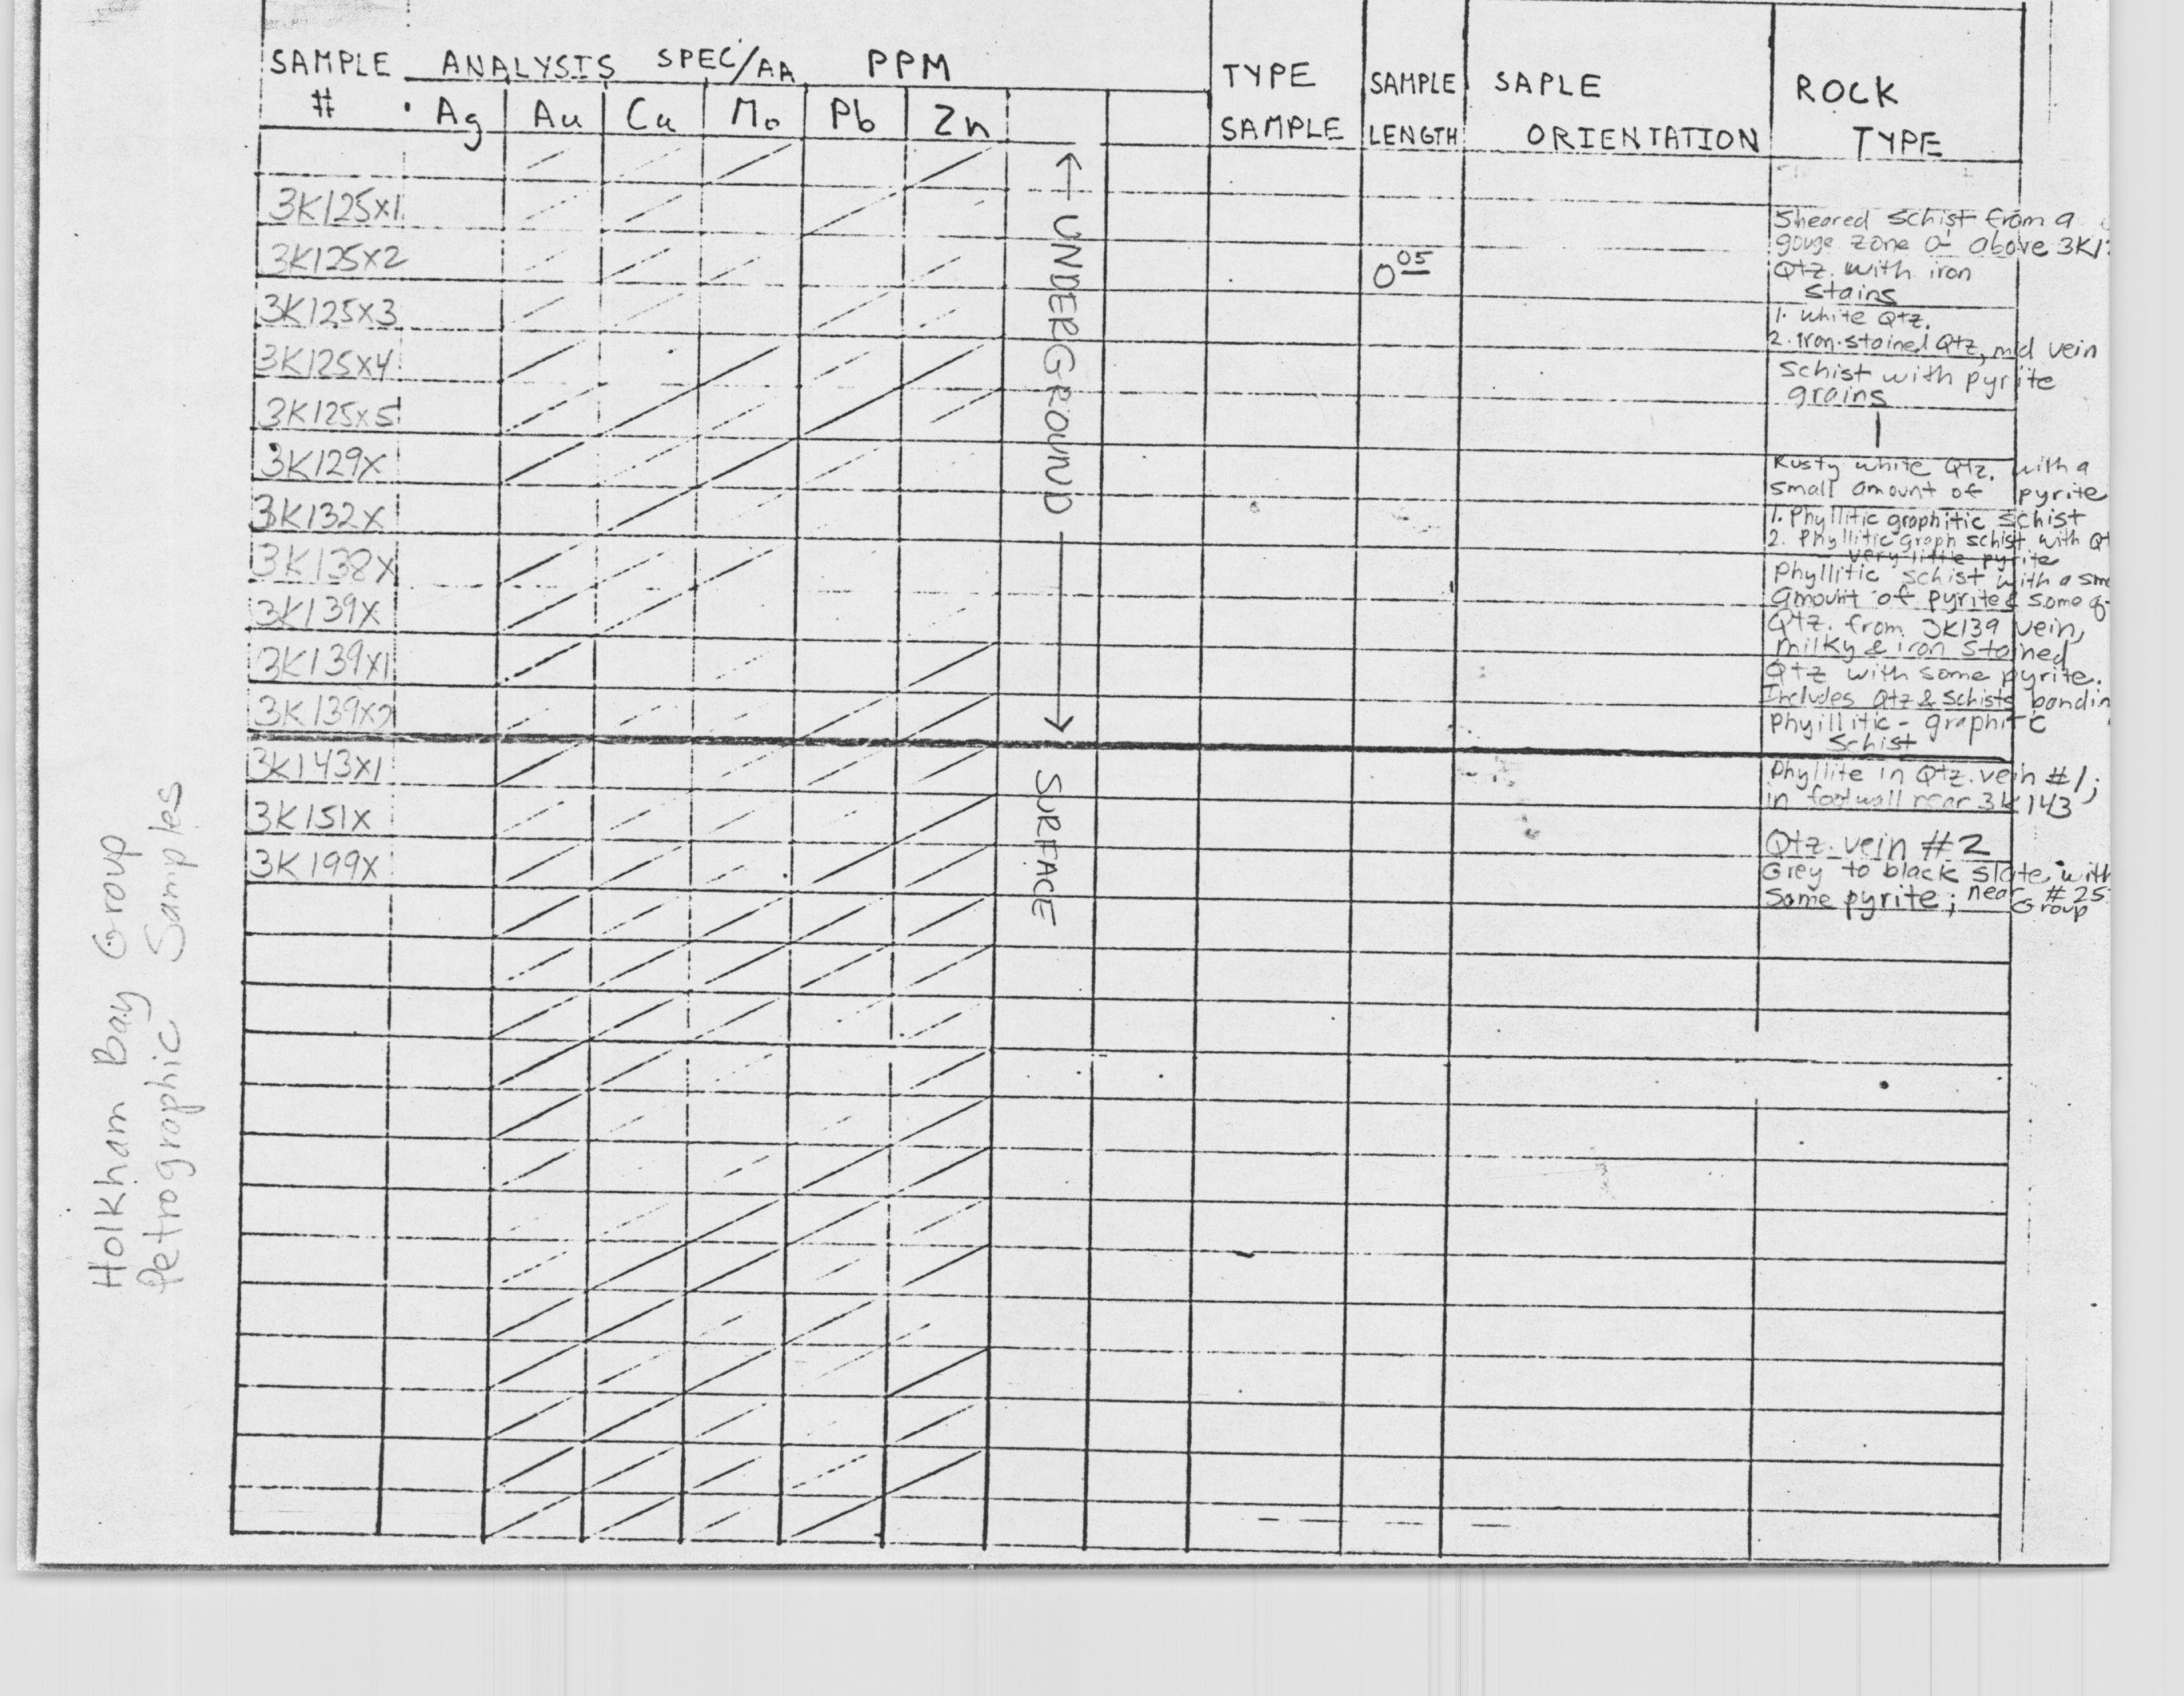 SAMPLE # ANALYSIS SPEC/AA PPM
Ag Au Cu Mo Pb Zn
TYPE SAMPLE
SAMPLE LENGTH
SAPLE ORIENTATION
ROCK TYPE
← UNDERGROUND →
3K125X1
Sheared Schist from a
gouge zone above 3K1
3K125X2
0 05
Qtz. with iron
stains
3K125X3
1. White Qtz.
2. Iron-stained Qtz, mid vein
3K125X4
Schist with pyrite
grains
3K125X5
3K129X
Rusty white Qtz. with a
small amount of pyrite
3K132X
1. Phyllitic graphitic schist
2. Phyllitic graph schist with
very little pyrite
3K138X
Phyllitic schist with a
amount of pyrite & some
3K139X
Qtz. from 3K139 vein,
milky & iron stained
3K139X1
Qtz with some pyrite.
Includes Qtz & Schists
3K139X2
Phyillitic - graphitic
Schist
SURFACE
3K143X1
Phyllite in Qtz. vein #1;
in footwall near 3K143
3K151X
Qtz. vein #2
3K199X
Grey to black slate with
Some pyrite; near #25
Group
Holkham Bay Group
Petrographic Samples